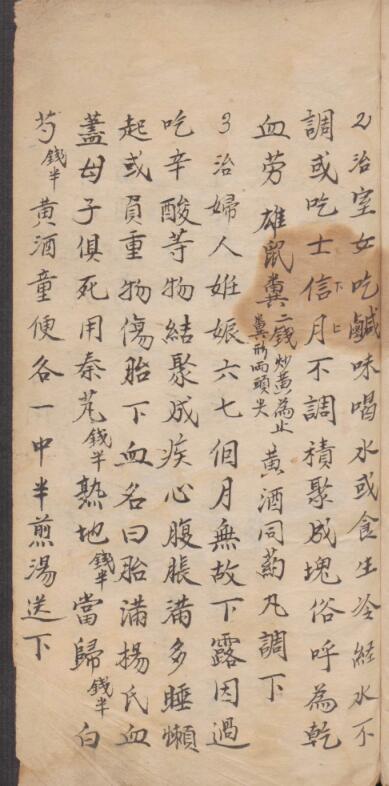 2治室女吃鹹味喝水或食生冷経水不
調或吃士信下月上不調積聚成塊俗呼為乾
血劳雄鼠糞二錢炒黄為止糞形两頭尖黄酒同药丸調下
3治婦人姙娠六七個月無故下露因過
吃辛酸等物結聚成疾心腹脹满多睡懒
起或負重物傷胎下血名曰胎满揚氏血
蓋母子俱死用秦艽錢半熟地錢半當歸錢半白
芍錢半黄酒童便各一中半煎湯送下